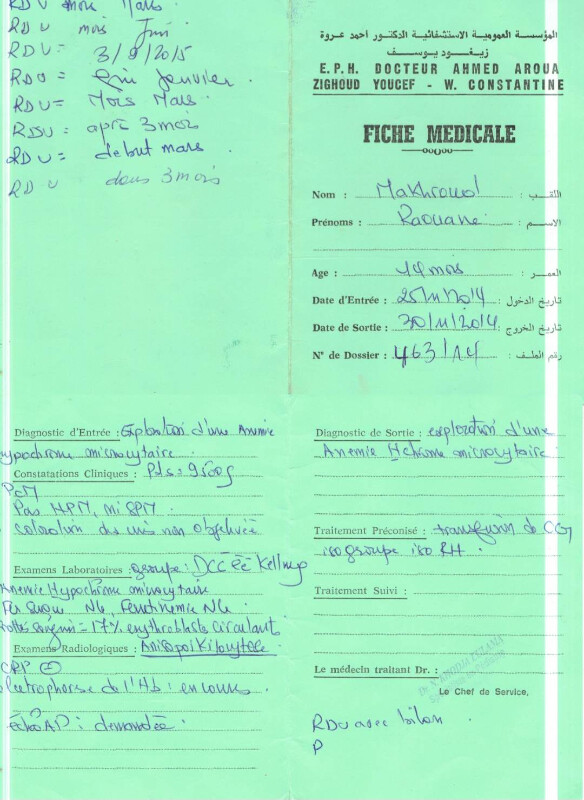 RDV mois Mars
RDV mois Juin
RDV = 3/9/2015
RDV = fin Janvier.
RDV = Mois Mars.
RDV = après 3 mois
RDV = debut mars.
RDV dans 3 mois
المؤسسة العمومية الاستشفائية الدكتور أحمد عروة
زيغود يوسف
E.P.H. DOCTEUR AHMED AROUA
ZIGHOUD YOUCEF - W. CONSTANTINE
FICHE MEDICALE
Nom : Makhroud اللقب :
Prénoms : Raouane الاسم :
Age : 14 mois العمر :
Date d'Entrée : 25/11/2014 تاريخ الدخول :
Date de Sortie : 30/11/2014 تاريخ الخروج :
N° de Dossier : 463/14 رقم الملف :
Diagnostic d'Entrée : Exploration d'une Anemie
hypochrome microcytaire.
Constatations Cliniques : Pds = 9500g
PCM
Pas HPM, ni SPM
coloration des
Examens Laboratoires : groupe :
Anemie Hypochrome microcytaire
Fer
= 17% erythroblasts circulant
Examens Radiologiques : Anisopoikilocytose
CRP ⊖
electrophorese de l'Hb : en cours.
echo AP : demandée.
Diagnostic de Sortie : exploration d'une
Anemie Hchrome microcytaire
Traitement Préconisé : transfusion de CG
iso groupe iso RH.
Traitement Suivi :
Le médecin traitant Dr. :
Le Chef de Service,
RDV avec bilan
P